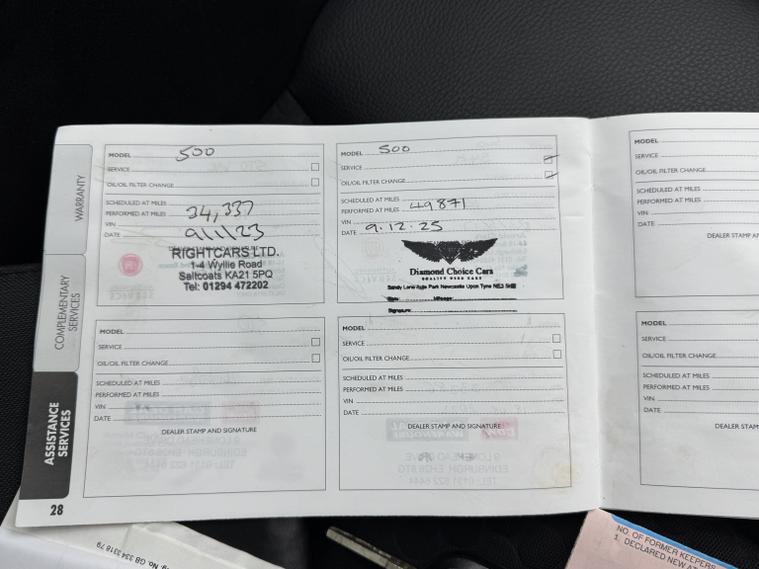 WARRANTY
COMPLEMENTARY
SERVICES
ASSISTANCE
SERVICES
28
MODEL 500
SERVICE
OIL/OIL FILTER CHANGE
SCHEDULED AT MILES
PERFORMED AT MILES 34,337
VIN
DATE 9/1/23
RIGHTCARS LTD.
1-4 Wyllie Road
Saltcoats KA21 5PQ
Tel: 01294 472202
MODEL 500
SERVICE
OIL/OIL FILTER CHANGE
SCHEDULED AT MILES
PERFORMED AT MILES 49871
VIN
DATE 9.12.25
Diamond Choice Cars
QUALITY USED CARS
Sandy Lane Park Newcastle Upon Tyne NE3
Date: Mileage:
Signature:
MODEL
SERVICE
OIL/OIL FILTER CHANGE
SCHEDULED AT MILES
PERFORMED AT MILES
VIN
DATE
DEALER STAMP AND SIGNATURE
MODEL
SERVICE
OIL/OIL FILTER CHANGE
SCHEDULED AT MILES
PERFORMED AT MILES
VIN
DATE
DEALER STAMP AND SIGNATURE
MODEL
SERVICE
OIL/OIL FILTER CHANGE
SCHEDULED AT MILES
PERFORMED AT MILES
VIN
DATE
DEALER STAMP AN
MODEL
SERVICE
OIL/OIL FILTER CHANGE
SCHEDULED AT MILES
PERFORMED AT MILES
VIN
DATE
DEALER STAM
No. GB 334 3318 79
NO. OF FORMER KEEPERS
1. DECLARED NEW AT